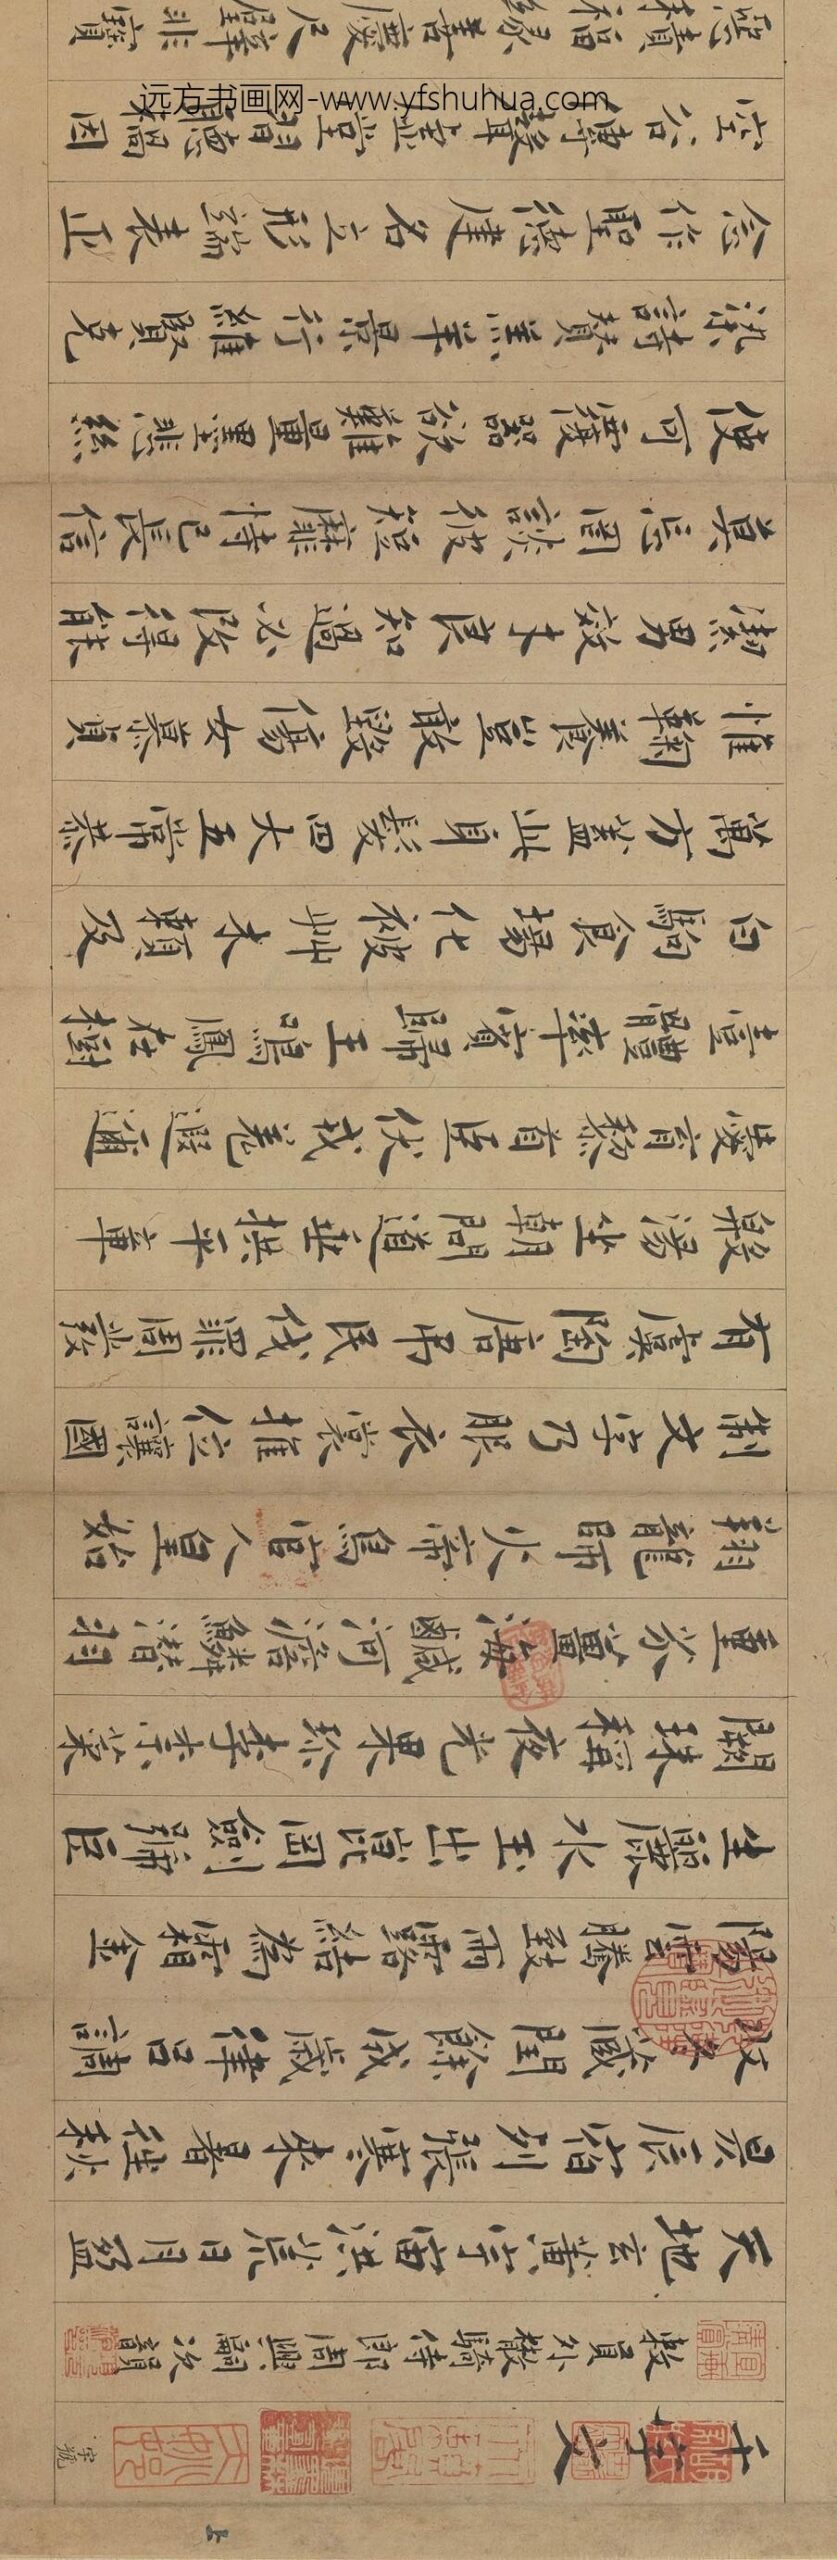 千字文
字號
上
敕員外散騎侍郎周興嗣次韻
天地玄黃宇宙洪荒日月盈
昃辰宿列張寒來暑往秋
收冬藏閏餘成歲律呂調
陽雲騰致雨露結為霜金
生麗水玉出崑岡劍號巨
闕珠稱夜光果珍李柰菜
重芥薑海鹹河澹鱗潛羽
翔龍師火帝鳥官人皇始
制文字乃服衣裳推位讓國
有虞陶唐吊民伐罪周發
殷湯坐朝問道垂拱平章
愛育黎首臣伏戎羌遐邇
壹體率賓歸王鳴鳳在樹
白駒食場化被艸木賴及
萬方蓋此身髮四大五常恭
惟鞠養豈敢毀傷女慕貞
潔男效才良知過必改得能
莫忘罔談彼短靡恃己長信
使可覆器欲難量墨悲絲
染詩贊羔羊景行維賢克
念作聖德建名立形端表正
空谷傳聲虛堂習聽禍因
惡積福緣善慶尺璧非寶
远方书画网-www.yfshuhua.com